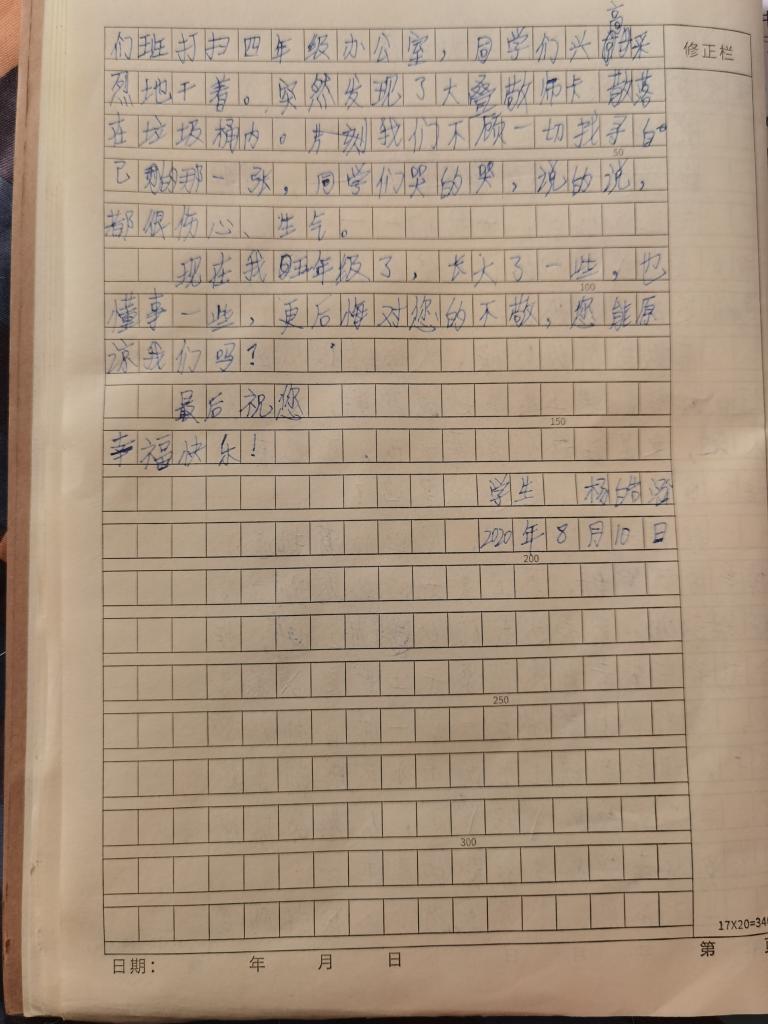 高
们班打扫四年级办公室，同学们兴采
修正栏
烈地干着。突然发现了大叠敬师卡 散落
在垃圾桶内。片刻我们不顾一切找寻自
50
己的那一张，同学们哭的哭，说的说，
都很伤心、生气。
现在我五年级了，长大了一些，也
100
懂事一些，更后悔对您的不敬，您能原
谅我们吗？
最后祝您
150
幸福快乐！
学生 杨皓
2020年8月10日
200
250
300
17X20=340
日期： 年 月 日
第